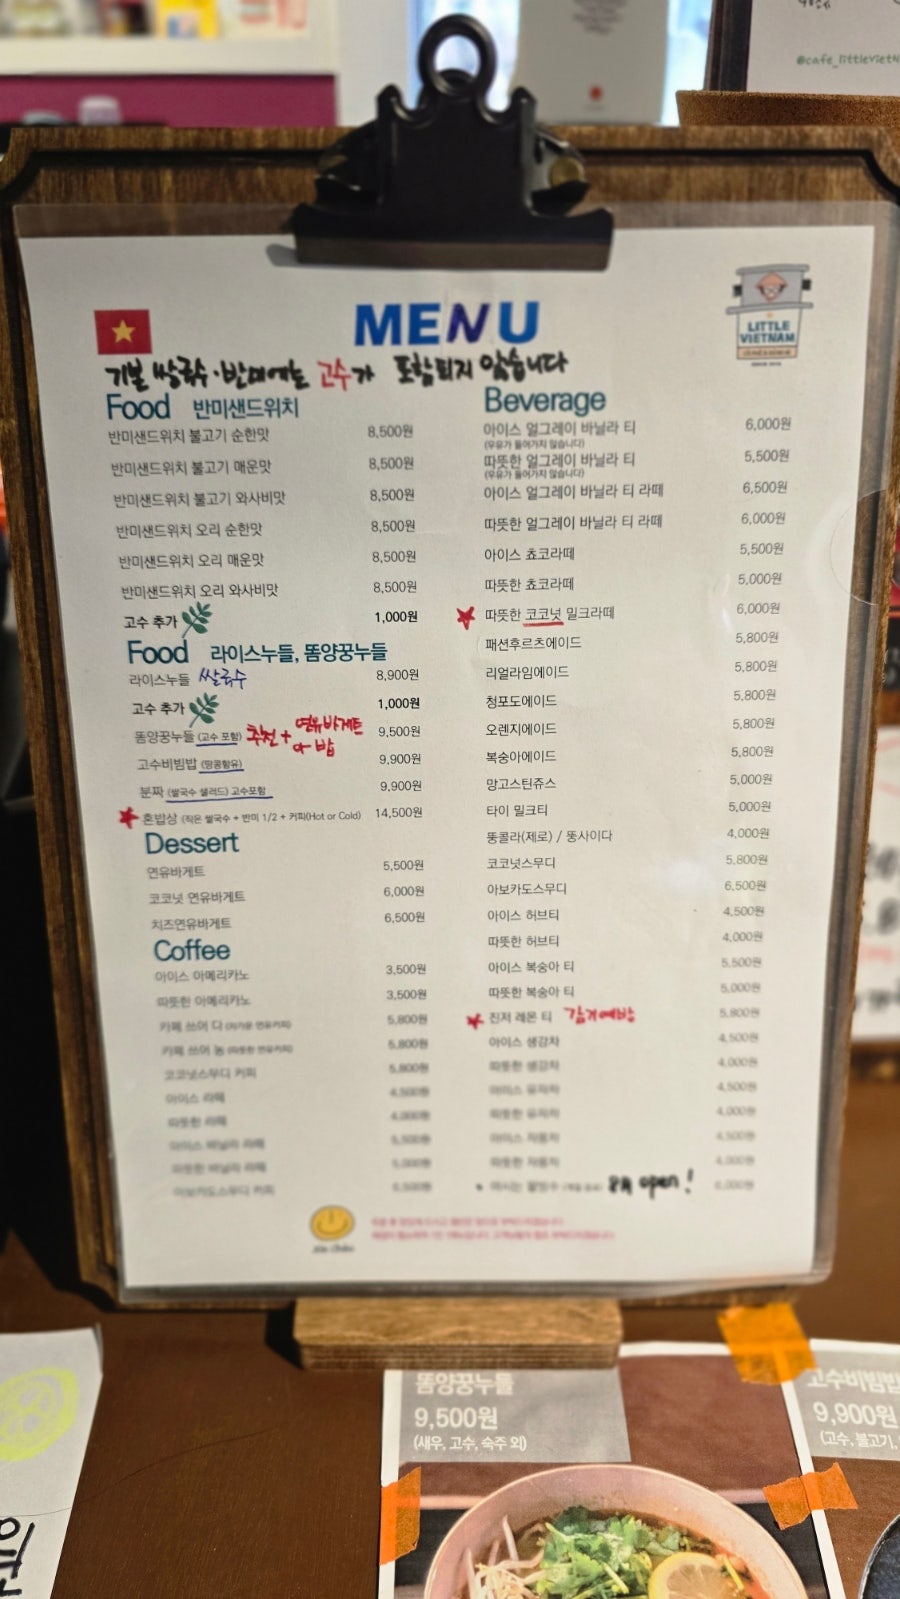 @cafe_littlevietn
MENU
LITTLE
VIETNAM
기본 쌀국수·반미에는 고수가 포함되지 않습니다
Food 반미샌드위치
반미샌드위치 불고기 순한맛 8,500원
반미샌드위치 불고기 매운맛 8,500원
반미샌드위치 불고기 와사비맛 8,500원
반미샌드위치 오리 순한맛 8,500원
반미샌드위치 오리 매운맛 8,500원
반미샌드위치 오리 와사비맛 8,500원
고수 추가 1,000원
Food 라이스누들, 똠양꿍누들
라이스누들 쌀국수 8,900원
고수 추가 1,000원
똠양꿍누들 (고수 포함) 추천 + 연유바게트 9,500원
or 밥
고수비빔밥 (땅콩함유) 9,900원
분짜 (쌀국수 샐러드) 고수포함 9,900원
혼밥상 (작은 쌀국수 + 반미 1/2 + 커피(Hot or Cold) 14,500원
Dessert
연유바게트 5,500원
코코넛 연유바게트 6,000원
치즈연유바게트 6,500원
Coffee
아이스 아메리카노 3,500원
따뜻한 아메리카노 3,500원
카페 쓰어 다 (차가운 연유커피) 5,800원
카페 쓰어 농 (따뜻한 연유커피) 5,800원
코코넛스무디 커피 5,800원
아이스 라떼 4,500원
따뜻한 라떼 4,000원
아이스 바닐라 라떼 5,500원
따뜻한 바닐라 라떼 5,000원
아보카도스무디 커피 6,500원
Beverage
아이스 얼그레이 바닐라 티 6,000원
(우유가 들어가지 않습니다)
따뜻한 얼그레이 바닐라 티 5,500원
(우유가 들어가지 않습니다)
아이스 얼그레이 바닐라 티 라떼 6,500원
따뜻한 얼그레이 바닐라 티 라떼 6,000원
아이스 쵸코라떼 5,500원
따뜻한 쵸코라떼 5,000원
따뜻한 코코넛 밀크라떼 6,000원
패션후르츠에이드 5,800원
리얼라임에이드 5,800원
청포도에이드 5,800원
오렌지에이드 5,800원
복숭아에이드 5,800원
망고스틴쥬스 5,000원
타이 밀크티 5,000원
뚱콜라(제로) / 뚱사이다 4,000원
코코넛스무디 5,800원
아보카도스무디 6,500원
아이스 허브티 4,500원
따뜻한 허브티 4,000원
아이스 복숭아 티 5,500원
따뜻한 복숭아 티 5,000원
진저 레몬 티 감기예방 5,800원
아이스 생강차 4,500원
따뜻한 생강차 4,000원
아이스 유자차 4,500원
따뜻한 유자차 4,000원
아이스 자몽차 4,500원
따뜻한 자몽차 4,000원
open! 6,000원
xin chào
똠양꿍누들
9,500원
(새우, 고수, 숙주 외)
고수비빔밥
9,900원
(고수, 불고기,